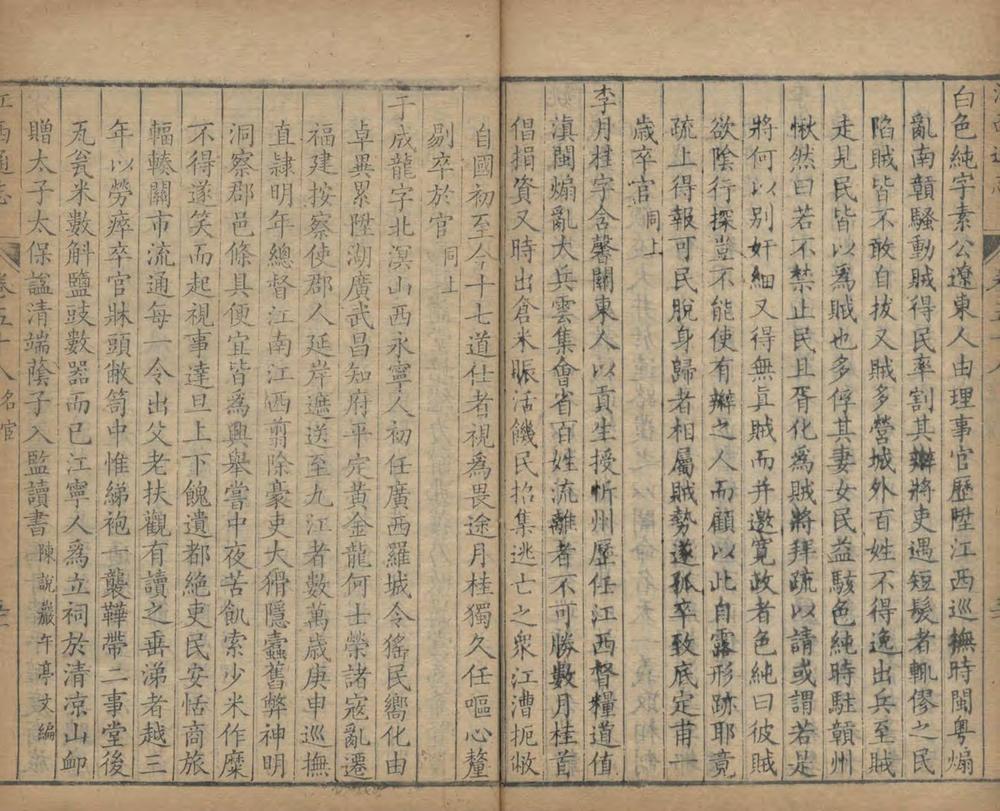 白色純字素公遼東人由理事官歷陞江西巡撫時閩粤煽
亂南贛騷動賊得民率割其辮將吏遇短髮者輒僇之民
陷賊皆不敢自拔又賊多營城外百姓不得逸出兵至賊
走見民皆以爲賊也多俘其妻女民益駭色純時駐贛州
愀然曰若不禁止民且胥化爲賊將拜疏以請或謂若是
將何以别奸細又得無眞賊而并邀寛政者色純曰彼賊
欲陰行探豈不能使有辮之人而顧以此自露形跡耶竟
疏上得報可民脫身歸者相屬賊勢遂孤卒致底定甫一
歲卒官同上
李月桂字含馨關東人以貢生授忻州歷任江西督糧道值
滇閩煽亂大兵雲集會省百姓流離者不可勝數月桂首
倡捐資又時出倉米賑活饑民招集逃亡之衆江漕扼敝
自國初至今十七道仕者視爲畏途月桂獨久任嘔心釐
剔卒於官同上
于成龍字北溟山西永寧人初任廣西羅城令猺民嚮化由
卓異累陞湖廣武昌知府平定黃金龍何士榮諸寇亂遷
福建按察使郡人延岸遮送至九江者數萬歲庚申巡撫
直隷明年總督江南江西剪除豪吏大猾隱蠹舊弊神明
洞察郡邑條具便宜皆爲興舉嘗中夜苦飢索少米作糜
不得遂笑而起視事達旦上下餽遺都絶吏民安恬商旅
輻輳關市流通每一令出父老扶觀有讀之垂涕者越三
年以勞瘁卒官牀頭敝笥中惟綈袍一襲鞾帶二事堂後
瓦瓮米數斛鹽豉數器而已江寧人爲立祠於清凉山卹
贈太子太保諡清端蔭子入監讀書陳説巖午亭文編
江西通志 卷五十八名宦